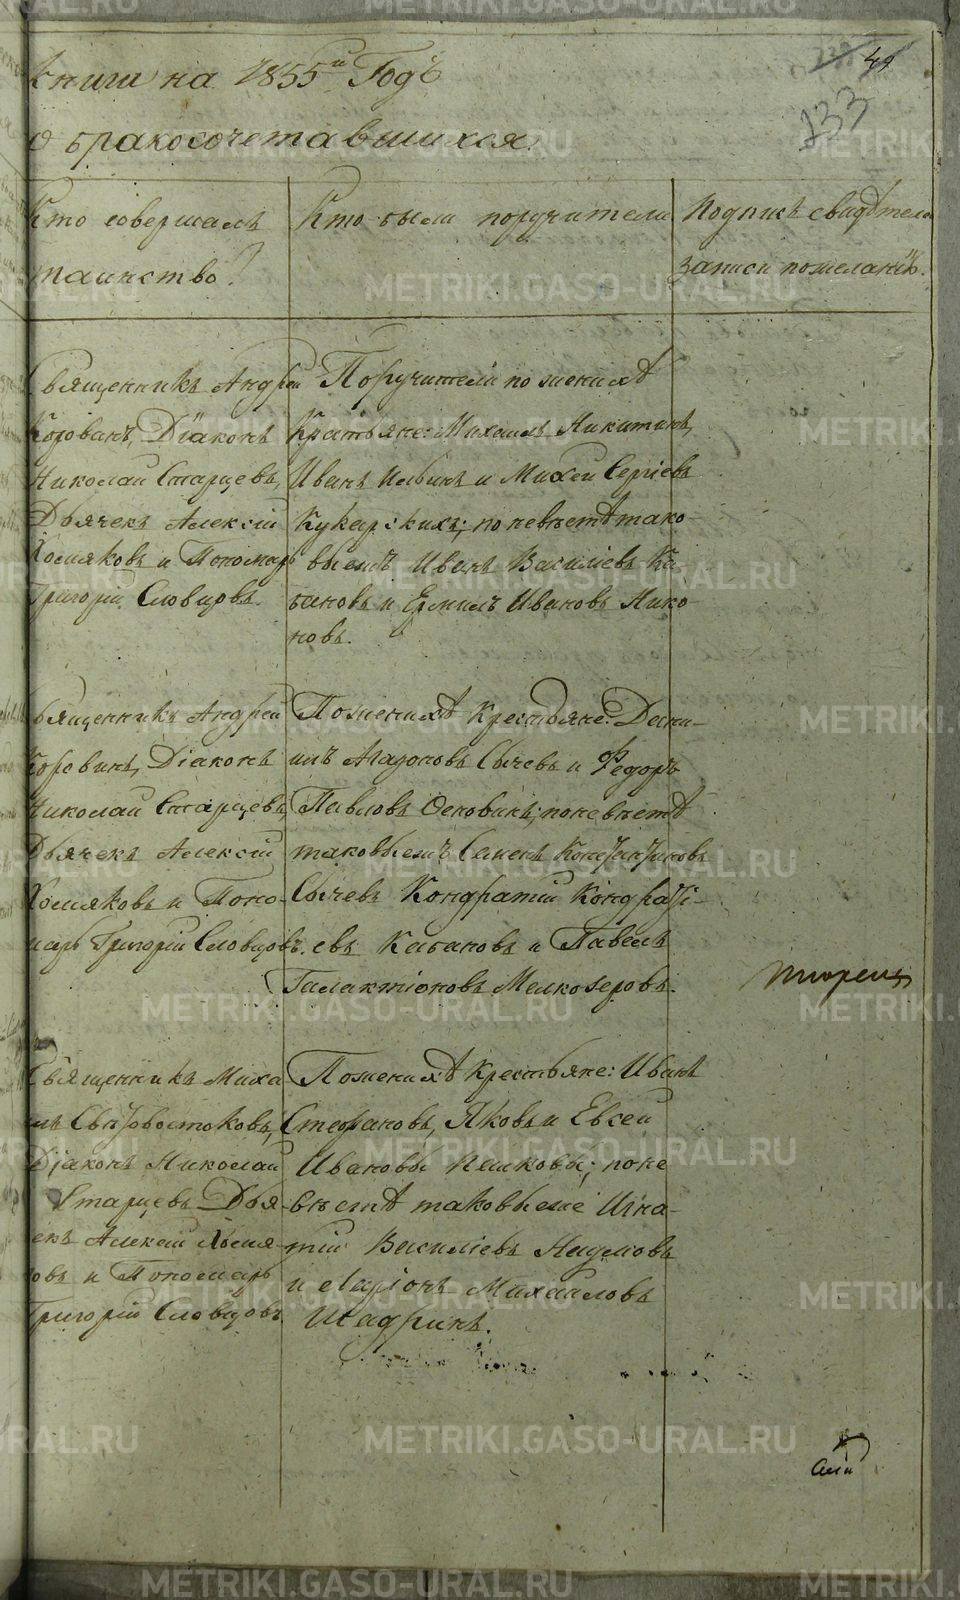 книги на 1855й Годъ
41
133
о бракосочетавшихся.
Кто совершалъ
таинство?
Кто были поручители
Подпись свидѣтелей
записи по желанію.
Священникъ Андрей
Діаконъ
Николай Старцевъ,
Дьячекъ Алексій
Хомяковъ и Пономарь
Григорій Словцовъ.
Поручители по женихѣ
Михаилъ Никитинъ,
Иванъ Ильинъ и Михей Сергіевъ
Кукарскихъ; по невѣстѣ тако-
выемъ Иванъ Василіевъ Ка-
бановъ и Ермилъ Ивановъ Нико-
новъ.
Священникъ Андрей
Коровинъ, Діаконъ
Николай Старцевъ,
Дьячекъ Алексій
Хомяковъ и Поно-
марь Григорій Словцовъ.
По женихѣ Крестьяне: Дани-
илъ Агафоновъ Сычевъ и Федоръ
Павловъ по невѣстѣ
таковыемъ Семенъ
Сычевъ Кондратій Кондраті-
евъ Кабановъ и Павелъ
Галактіоновъ Мелкозеровъ.
Священникъ Миха
илъ Святовостоковъ,
Діаконъ Николай
Старцевъ Дья-
екъ Алексій Хомя-
овъ и Пономарь
Григорій Словцовъ.
По женихѣ Крестьяне: Иванъ
Стефановъ, Яковъ и Евсей
Ивановы Пешковы; по не
вѣстѣ таковыеже Игна-
тій Василіевъ Наумовъ
и Ларіонъ Михаиловъ
Шадринъ.
METRIKI.GASO-URAL.RU